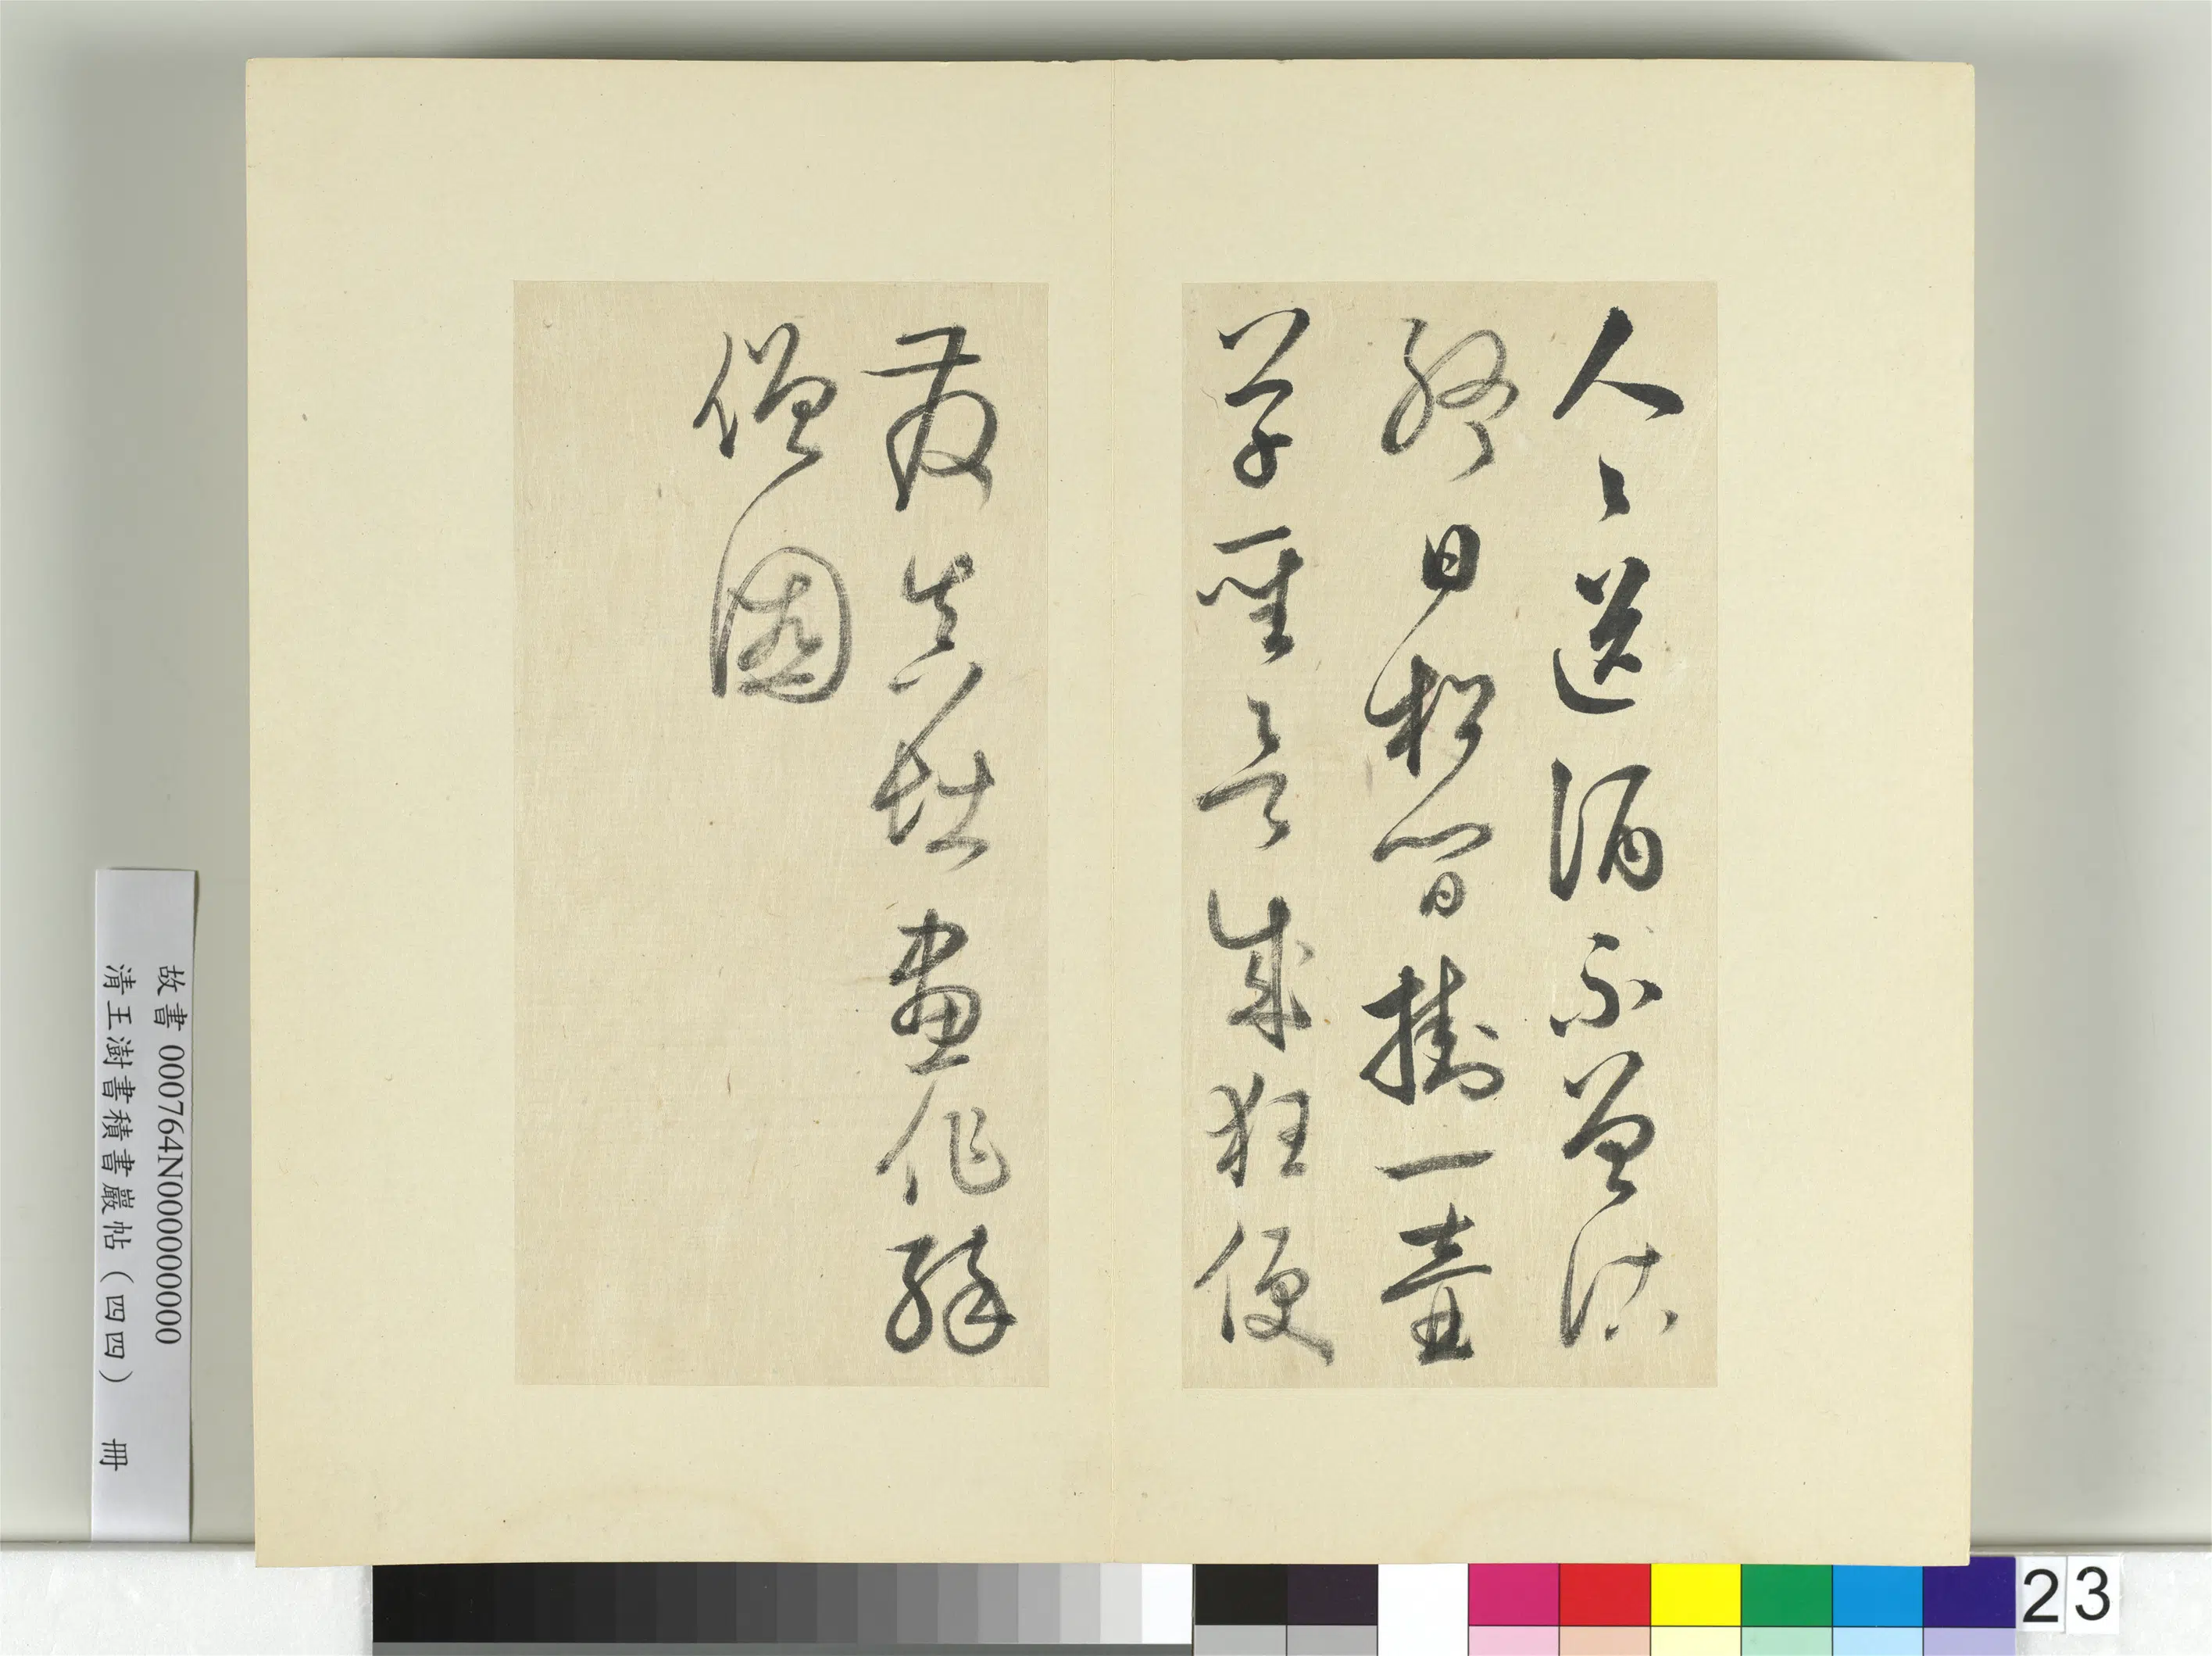 人〻送酒不曾沽
終日松間掛一壺
草聖欲成狂便
發真堪畫作醉
僧圖
故書 000764N000000000
清王澍書積書巖帖（四四） 冊
23